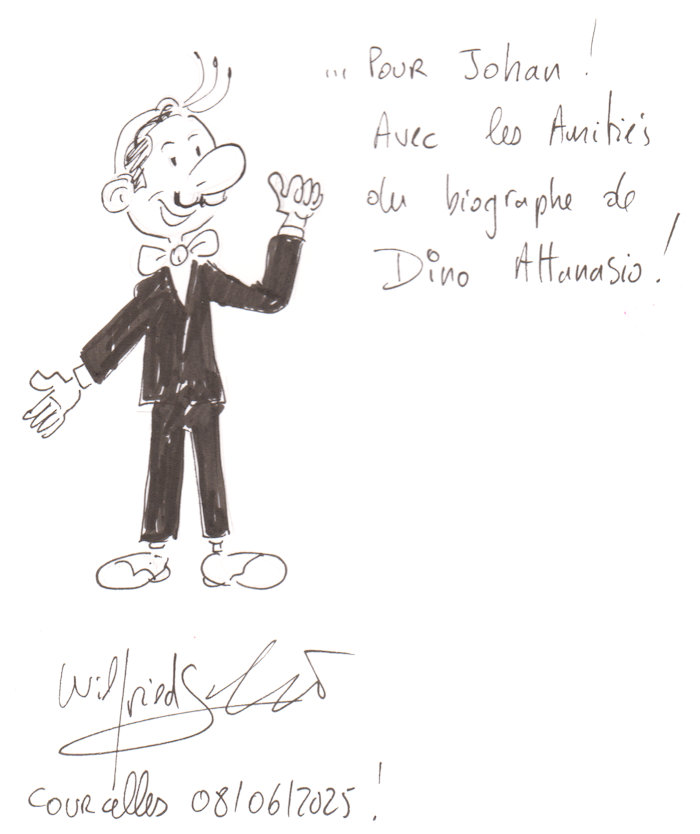 ... Pour Johan !
Avec les Amitiés
du biographe de
Dino Attanasio !
Wilfried
Courcelles 08/06/2025 !